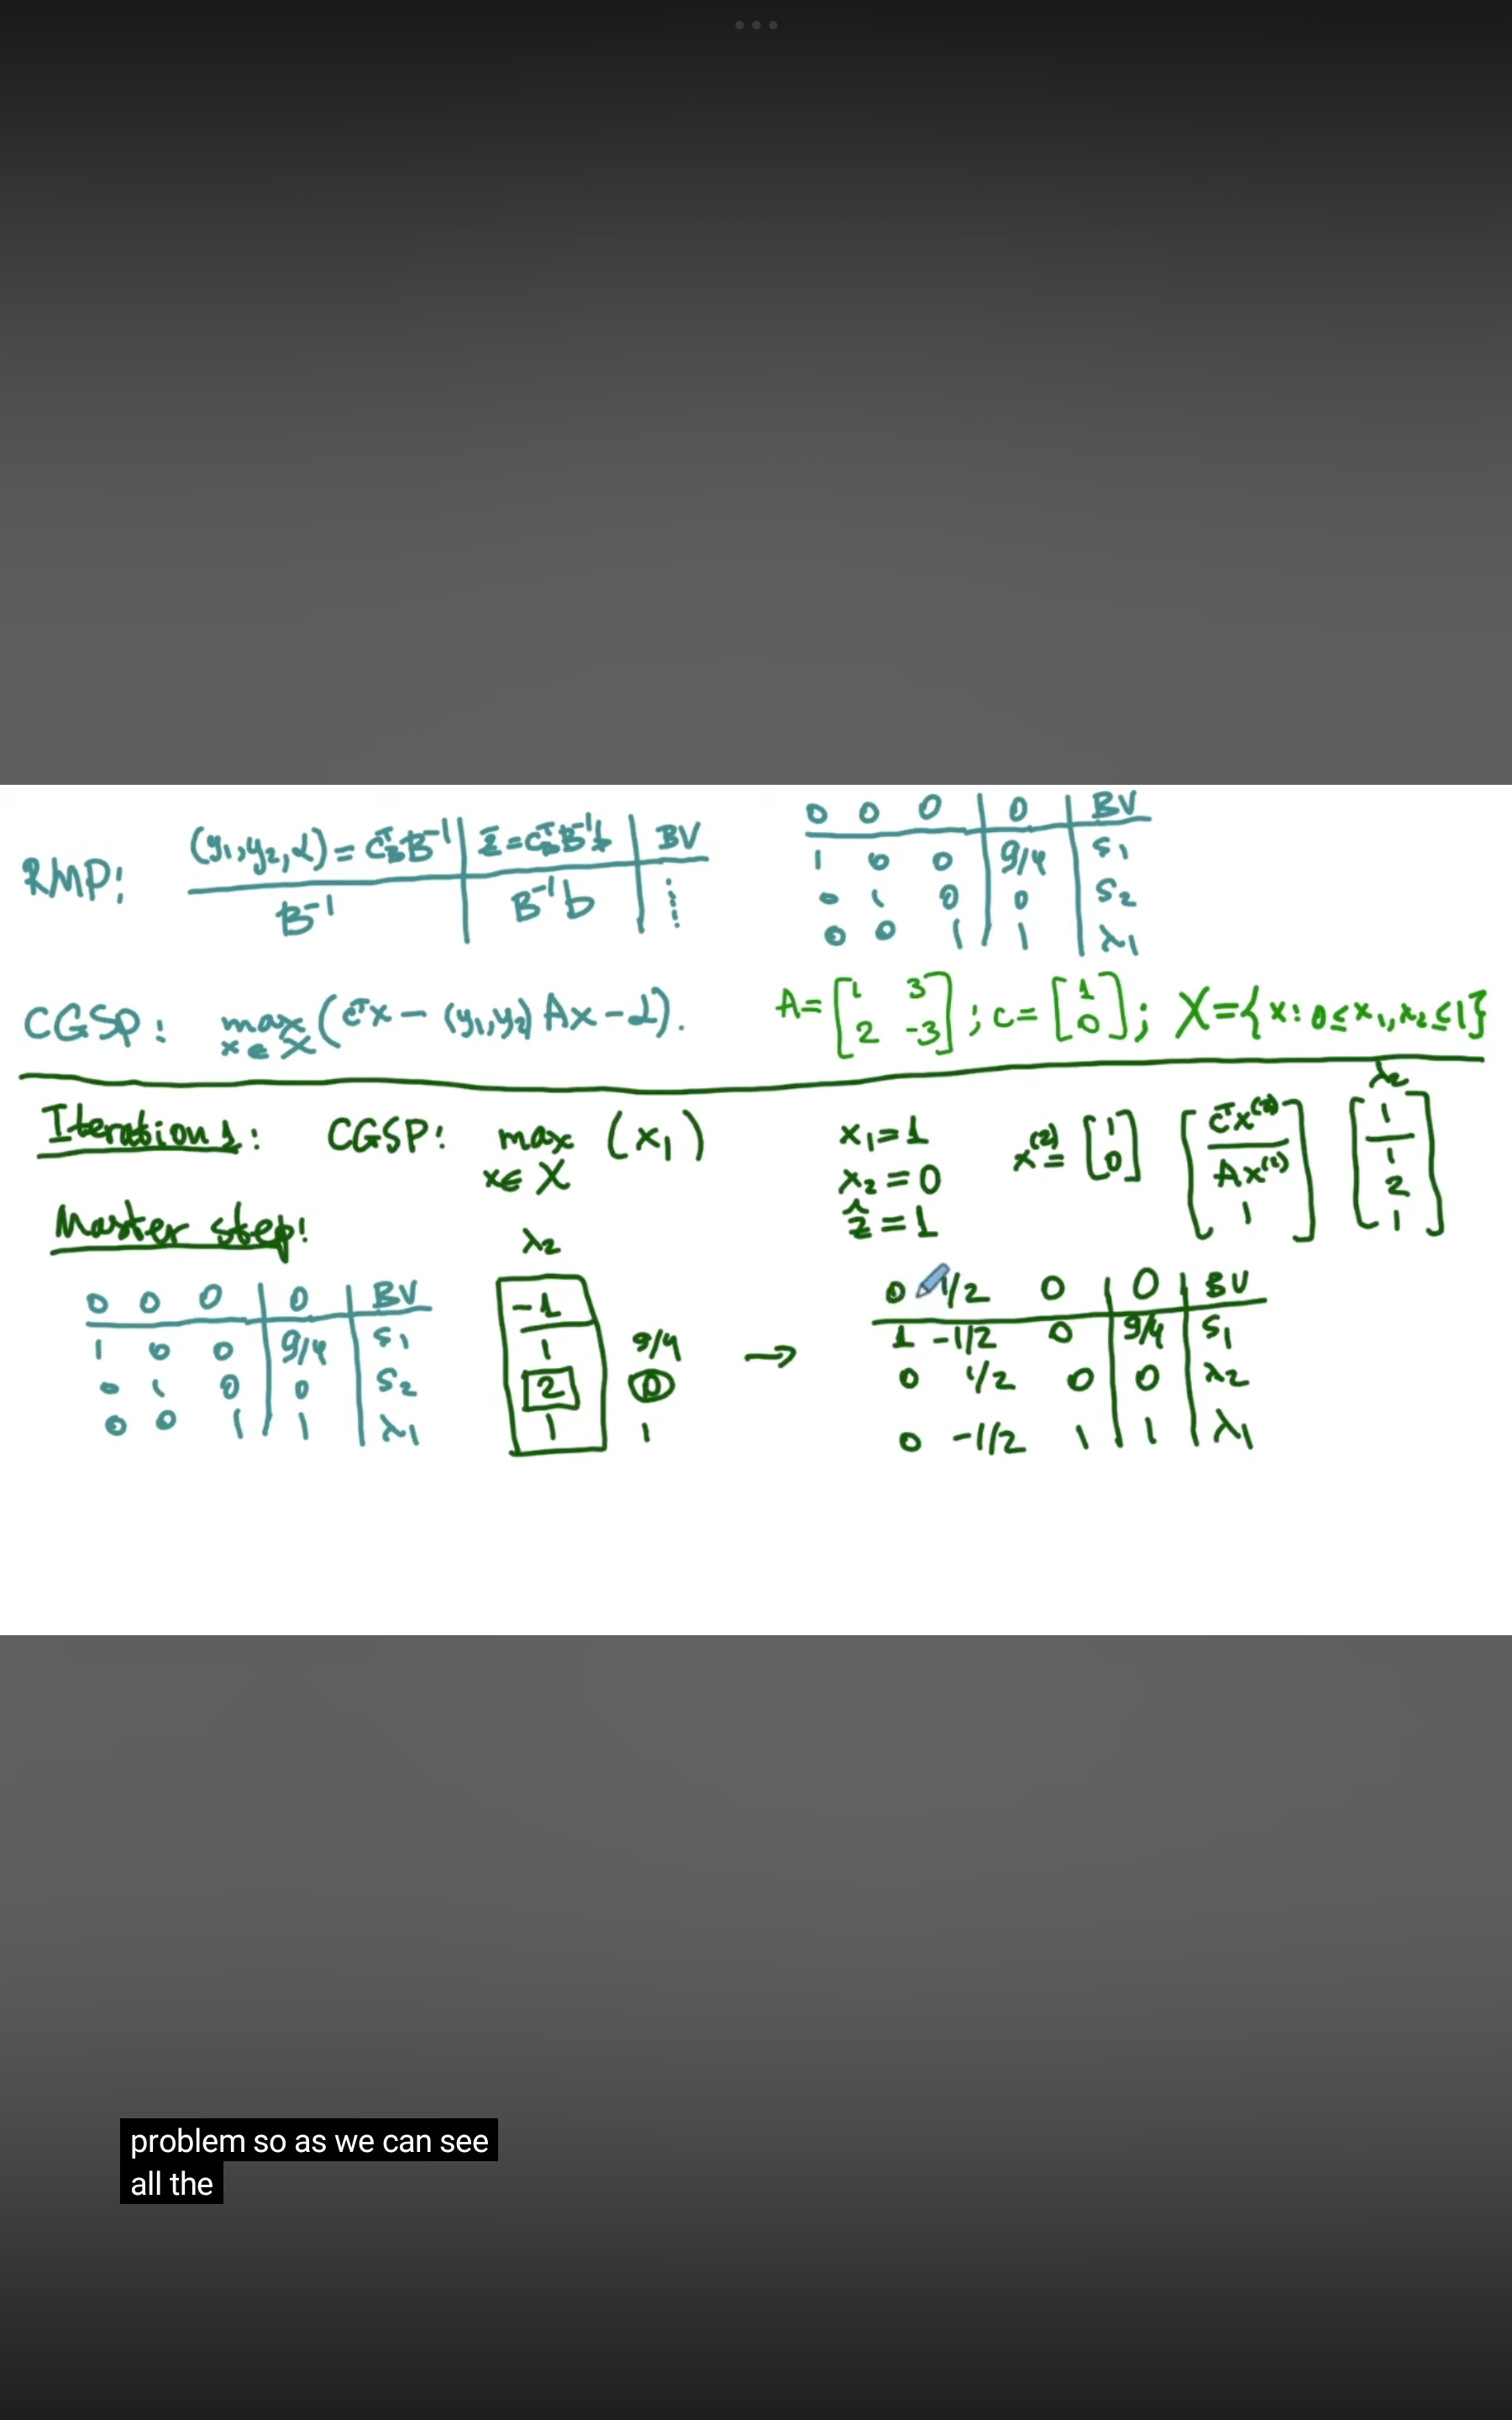 RMP: (y₁,y₂,α) = cᵀ_B B⁻¹ | z̄ = cᵀ_B B⁻¹b | BV
B⁻¹ | B⁻¹b | ⋮
0 0 0 | 0 | BV
1 0 0 | 9/4 | s₁
0 1 0 | 0 | s₂
0 0 1 | 1 | λ₁
CGSP: max x∈X (cᵀx − (y₁,y₂)Ax − α). A = [1 3; 2 -3]; c = [1; 0]; X = {x: 0 ≤ x₁, x₂ ≤ 1}
Iteration 1: CGSP: max x∈X (x₁)
x₁ = 1
x₂ = 0
ẑ = 1
x⁽²⁾ = [1 0]
[cᵀx⁽²⁾ Ax⁽²⁾ 1]
λ₂
[1 1 2 1]
Master step:
0 0 0 | 0 | BV
1 0 0 | 9/4 | s₁
0 1 0 | 0 | s₂
0 0 1 | 1 | λ₁
λ₂
-1
1 9/4
2 0
1 1
→
0 1/2 0 | 0 | BV
1 -1/2 0 | 9/4 | s₁
0 1/2 0 | 0 | λ₂
0 -1/2 1 | 1 | λ₁
problem so as we can see
all the